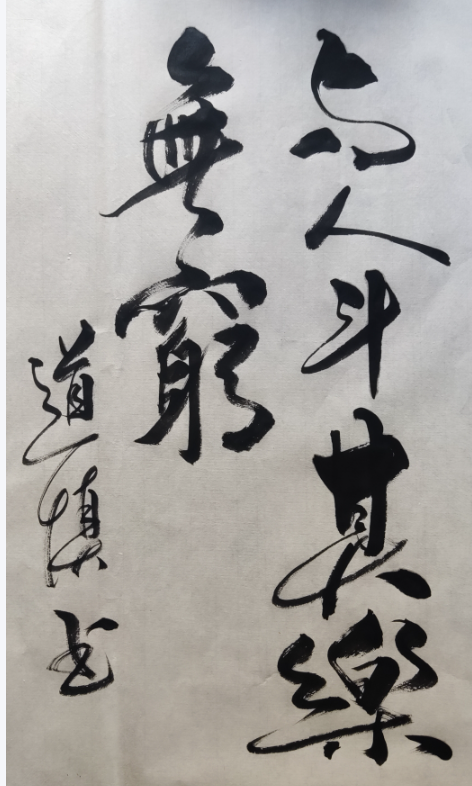 与人斗其樂
無窮
道慎书